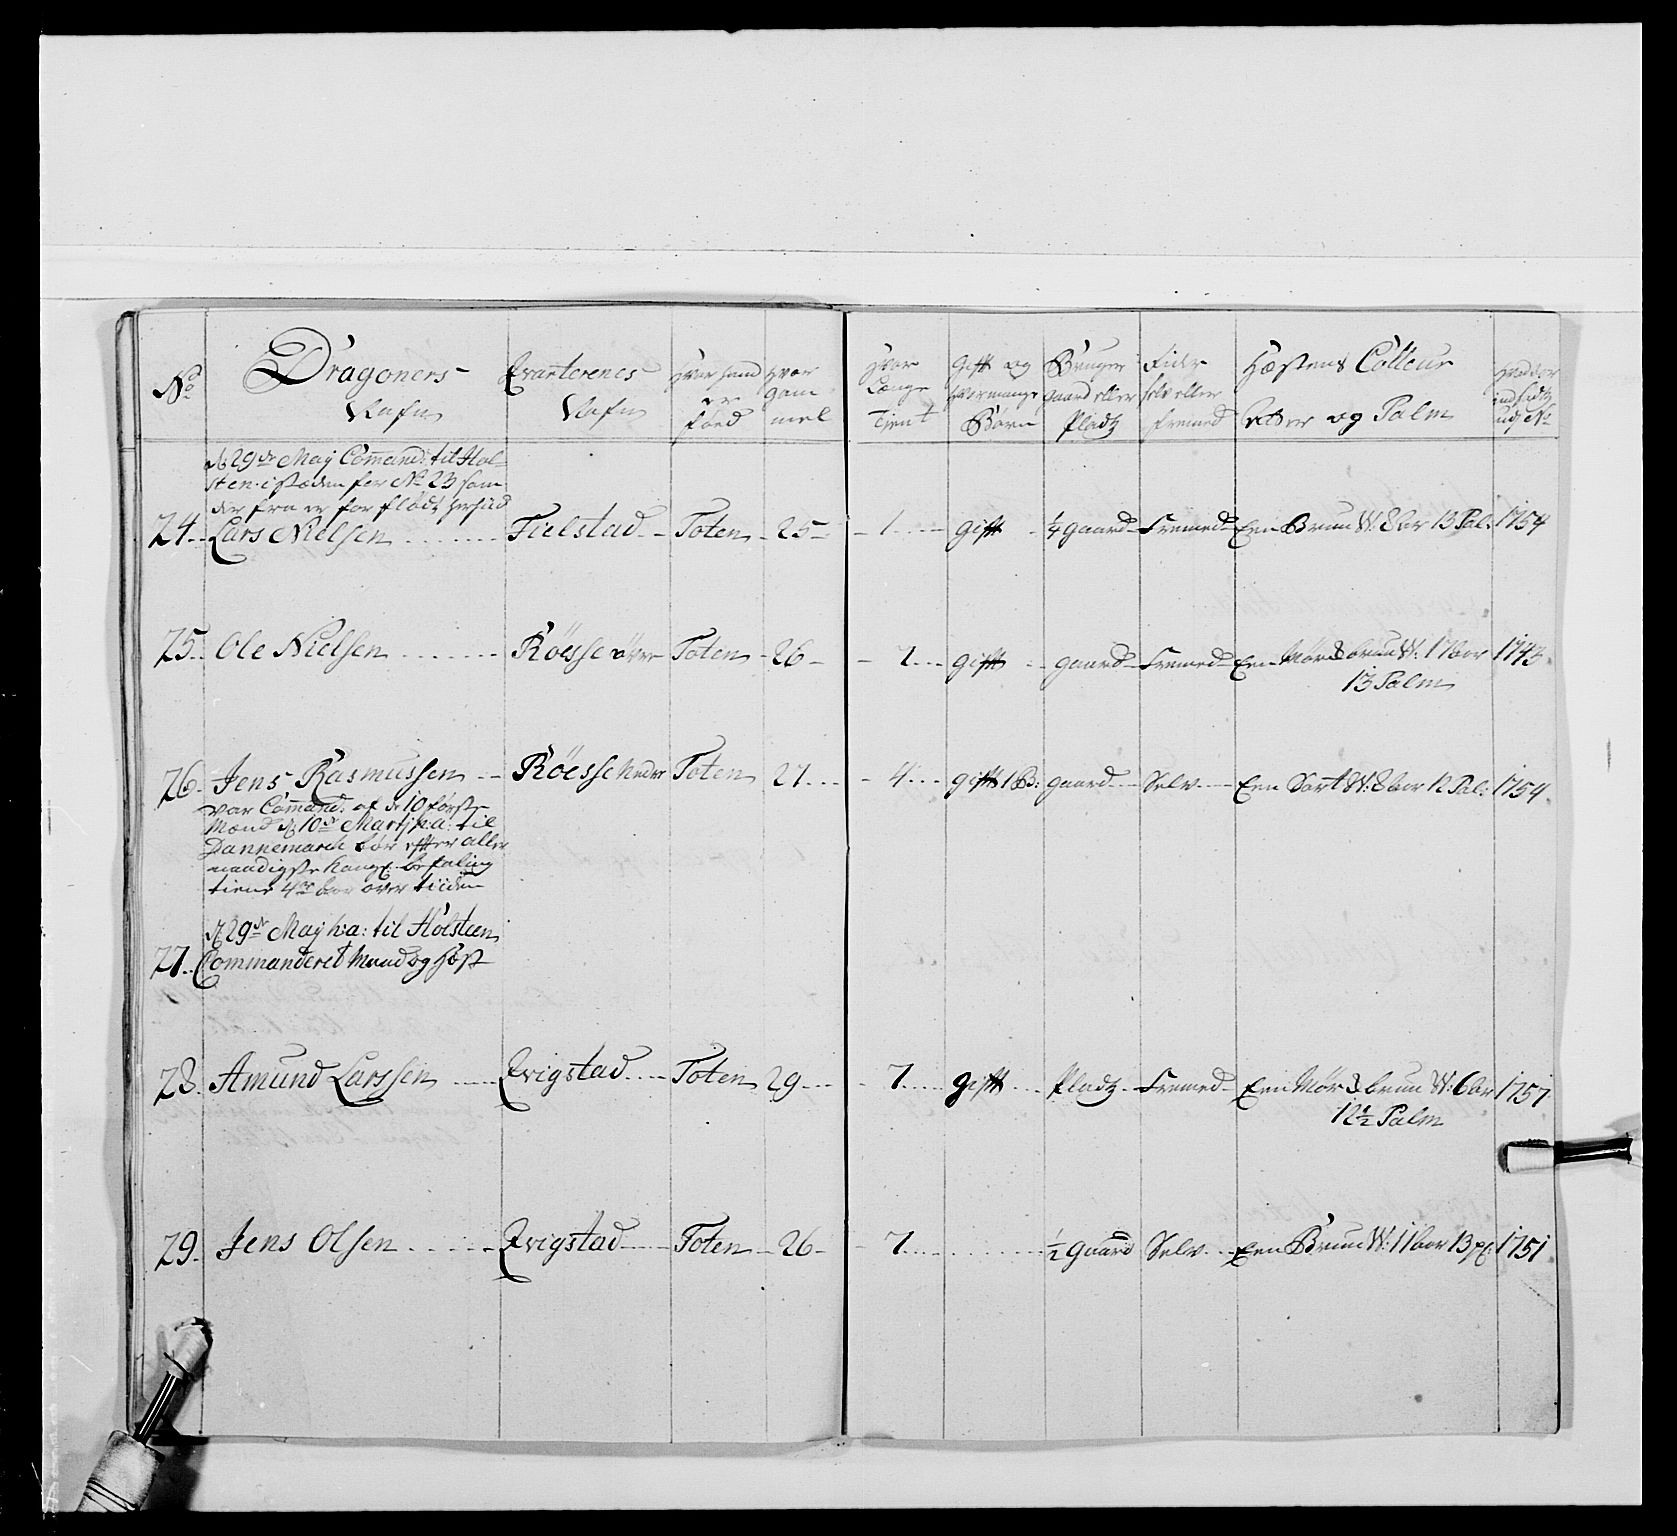 No Dragoners Nafn Qvarterenes Nafn Hvor hand er föed Hvor gammel Hvor Længe Tient Gift og Hvormange Börn Bruger gaard eller Pladtz Rider selv eller fremed Hæstens Colleur og Palm
d 29de Maij Comand: til Hol-
sten i stæden for No 23 som
der fra er for
24 Lars Nielsen Fielstad Toten 25 1 gift 1/4 gaard Fremed Een Bruun W: 8 aar 13 Pal: 1754
25 Ole Nielsen Röesse övre Toten 26 7 gift gaard Fremed Een Mörch bruun W: 17 aar 1743
13 Palm
26 Jens Rasmussen Röesse Neder Toten 27 4 gift 1 B: gaard Selv Een Sort W: 8 aar 12 Pal: 1754
var Comand: af de 10 förste
Mænd d 10de Martij h:a: til
Dannemarch bör efter aller
naadigste Kongl: befaling
tiene 4re aar over tiiden
d 29de Maij h:a: til Holsteen
27 Commanderet Mand og Hæst
28 Amund Larssen Qvigstad Toten 29 7 gift Pladtz Fremed Een Mörch bruun W: 6 aar 1757
12 1/2 Palm
29 Jens Olsen Qvigstad Toten 26 7 1/2 gaard Selv Een Bruun W: 11 aar 13 p: 1751